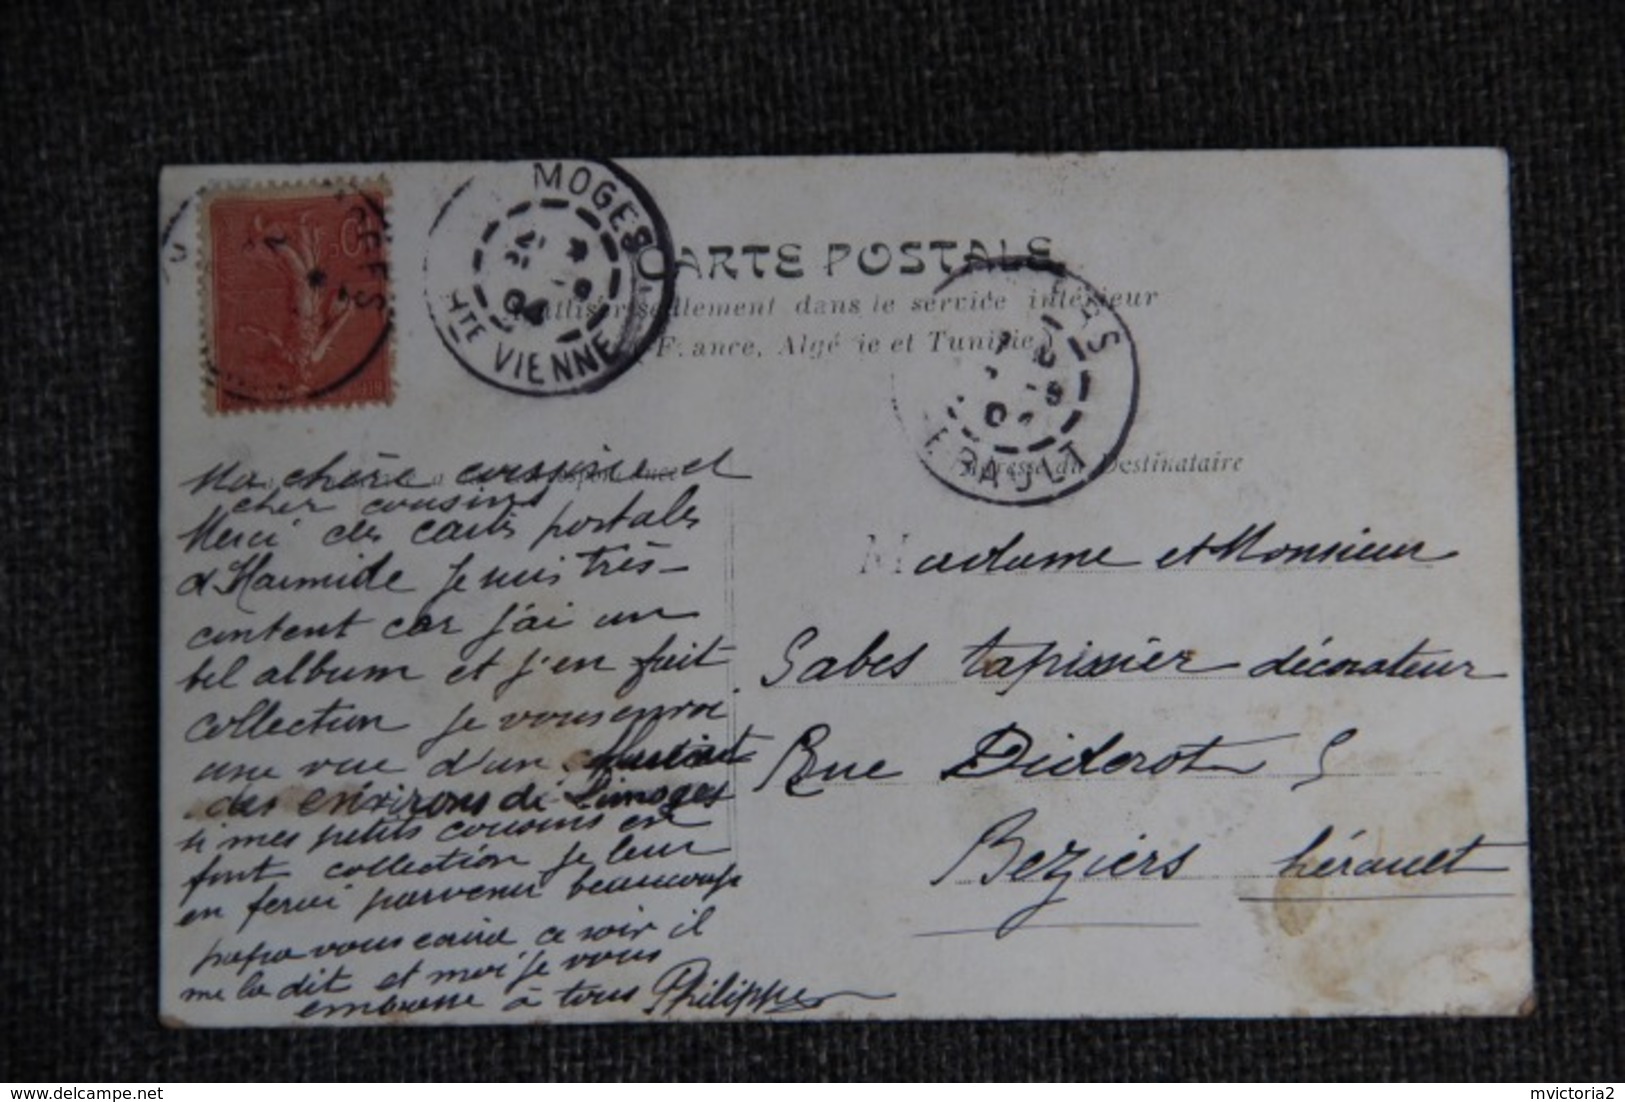 MOGES
HTE VIENNE
04
CARTE POSTALE
utiliser seulement dans le service intérieur
(France, Algérie et Tunisie)
ERS
HERAULT
Adresse du Destinataire
Ma chère cousine et
cher cousin
Merci des cartes postales
d'Harmide je suis très-
content car j'ai un
bel album et j'en fait
collection je vous envoi
une vue d'un
des environs de Limoges
si mes petits cousins en
font collection je leur
en ferai parvenir beaucoup
papa vous écrira ce soir il
me la dit et moi je vous
embrasse à tous Philippe
Madame et Monsieur
Sabes tapissier décorateur
Rue Diderot 5
Beziers hérault
delcampe.net
mvictoria2